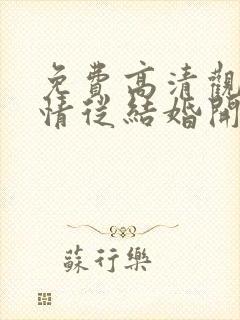 免費高清觀
情從結婚開
蘇行樂